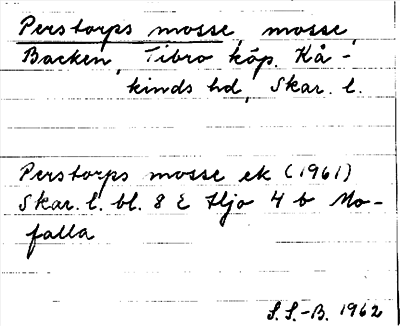 Perstorps mosse, mosse,
Backen, Tibro köp. Kå-
kinds hd, Skar. l.
Perstorps mosse ek (1961)
Skar. l. bl. 8 E Hjo 4 b Mo-
falla
S.S.-B. 1962